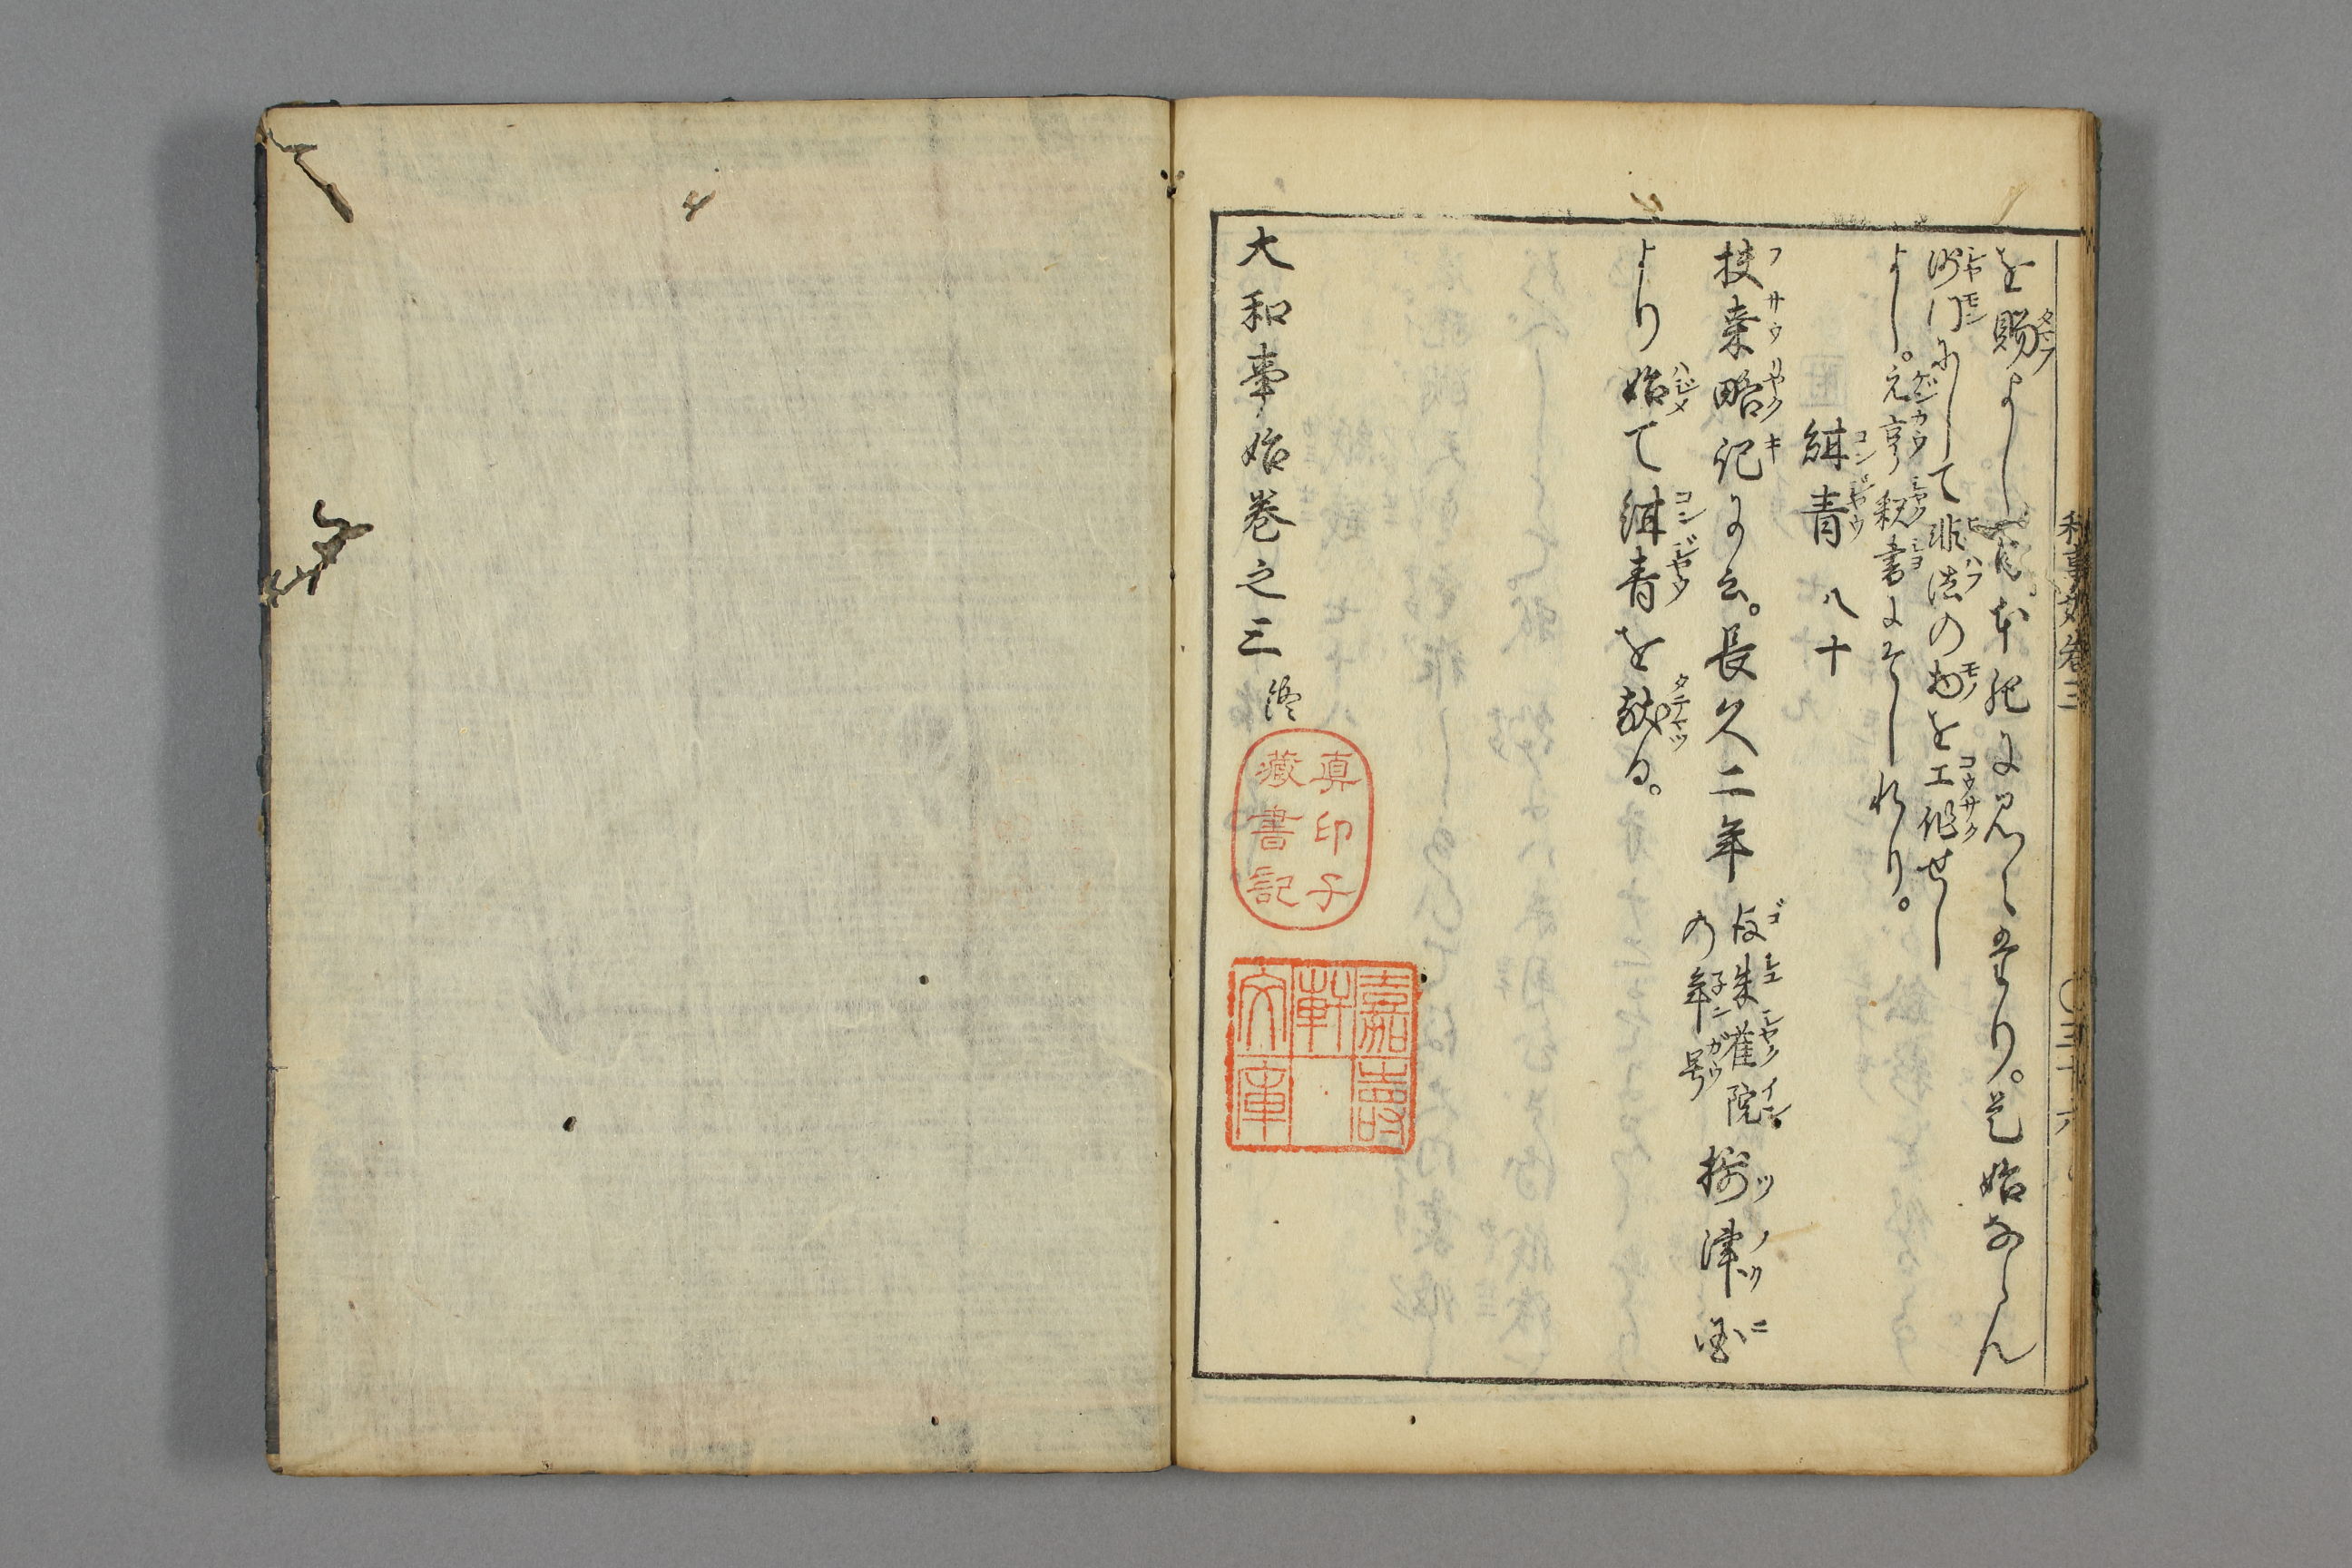 を賜よし。本紀に見えたり。是始ならん
沙門にして非法の物を工作せし
よし。元亨釈書にそしれり。
紺青 八十
扶桑略記に云。長久二年 後朱雀院の年号 摂津国
より始て紺青を献る。
大和事始巻之三 終
真印子
蔵書記
嘉壽
軒
文庫
和事始巻三
〇三十六